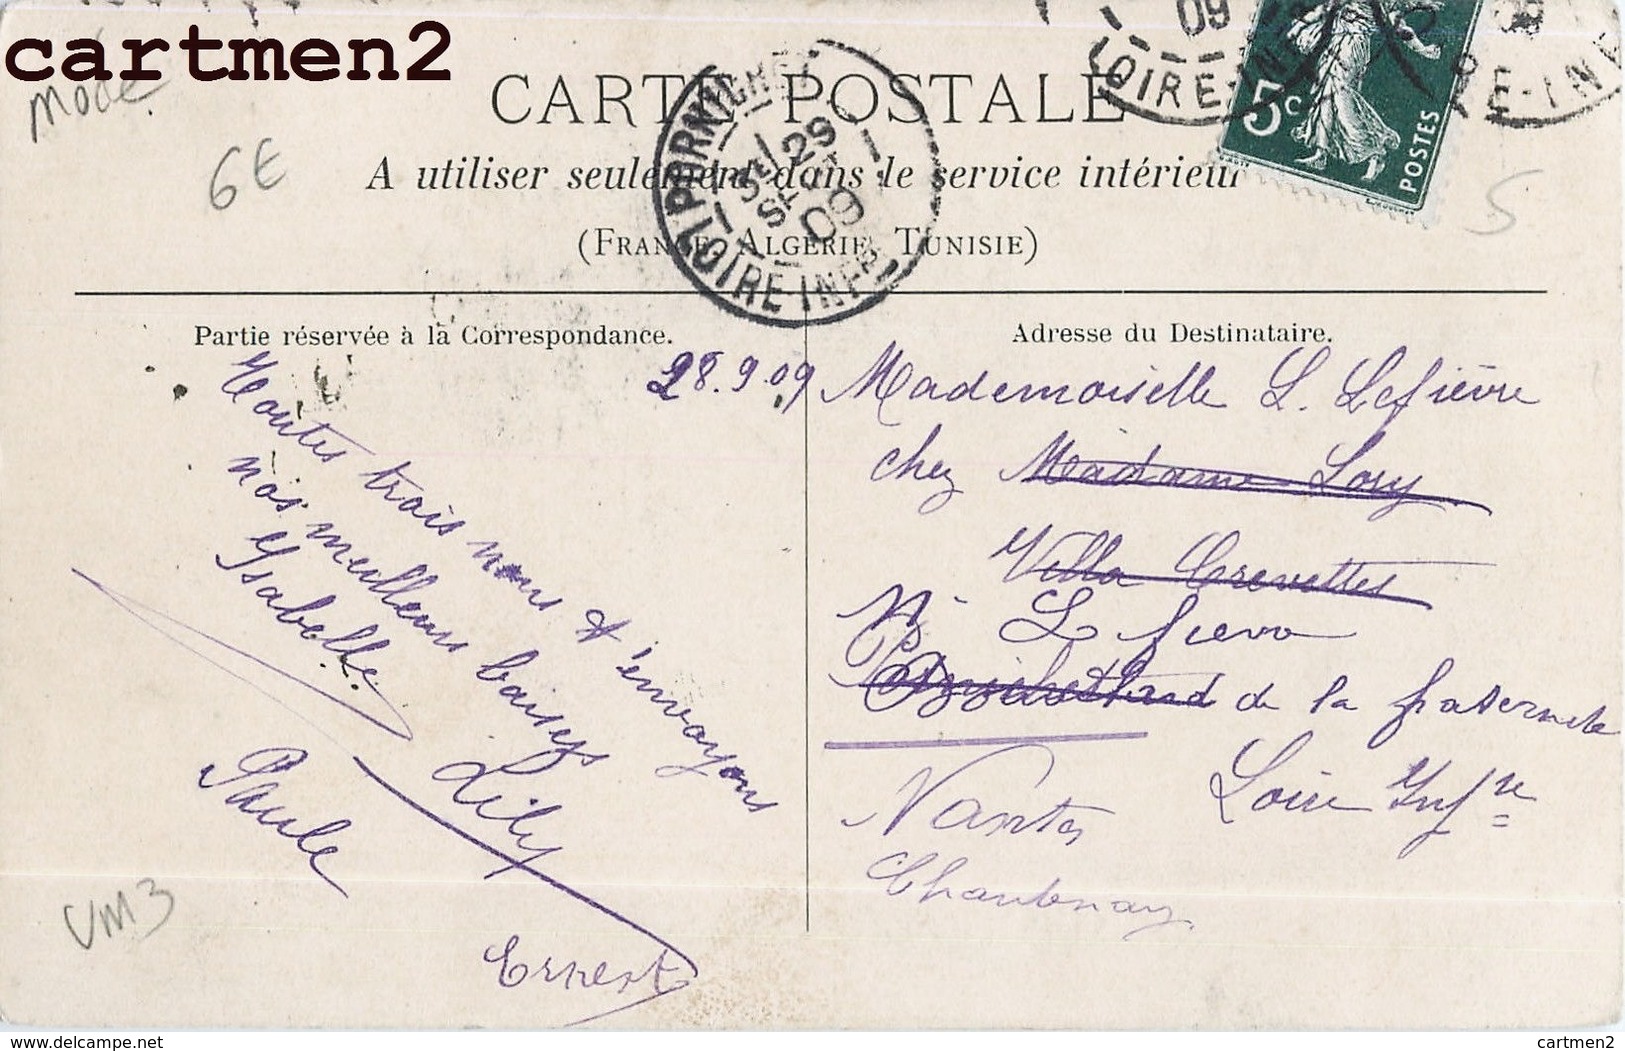 cartmen2
mode
6E
CARTE POSTALE
A utiliser seulement dans le service intérieur
(FRANCE, ALGÉRIE, TUNISIE)
PORNICHET
29
SEPT
09
LOIRE-INFRE
09
LOIRE-INF
RE-INF
5c
POSTES
5
Partie réservée à la Correspondance.
28.9.09
Toutes trois nous t'envoyons
nos meilleurs baisers
Isabelle.
Lily
Paule
Ernest
VM3
Adresse du Destinataire.
Mademoiselle L. Lefièvre
chez Madame Lory
Villa Crevettes
Lefievre
de la fraternité
Loire Infre
Nantes
Chantenay
Delcampe.net
cartmen2